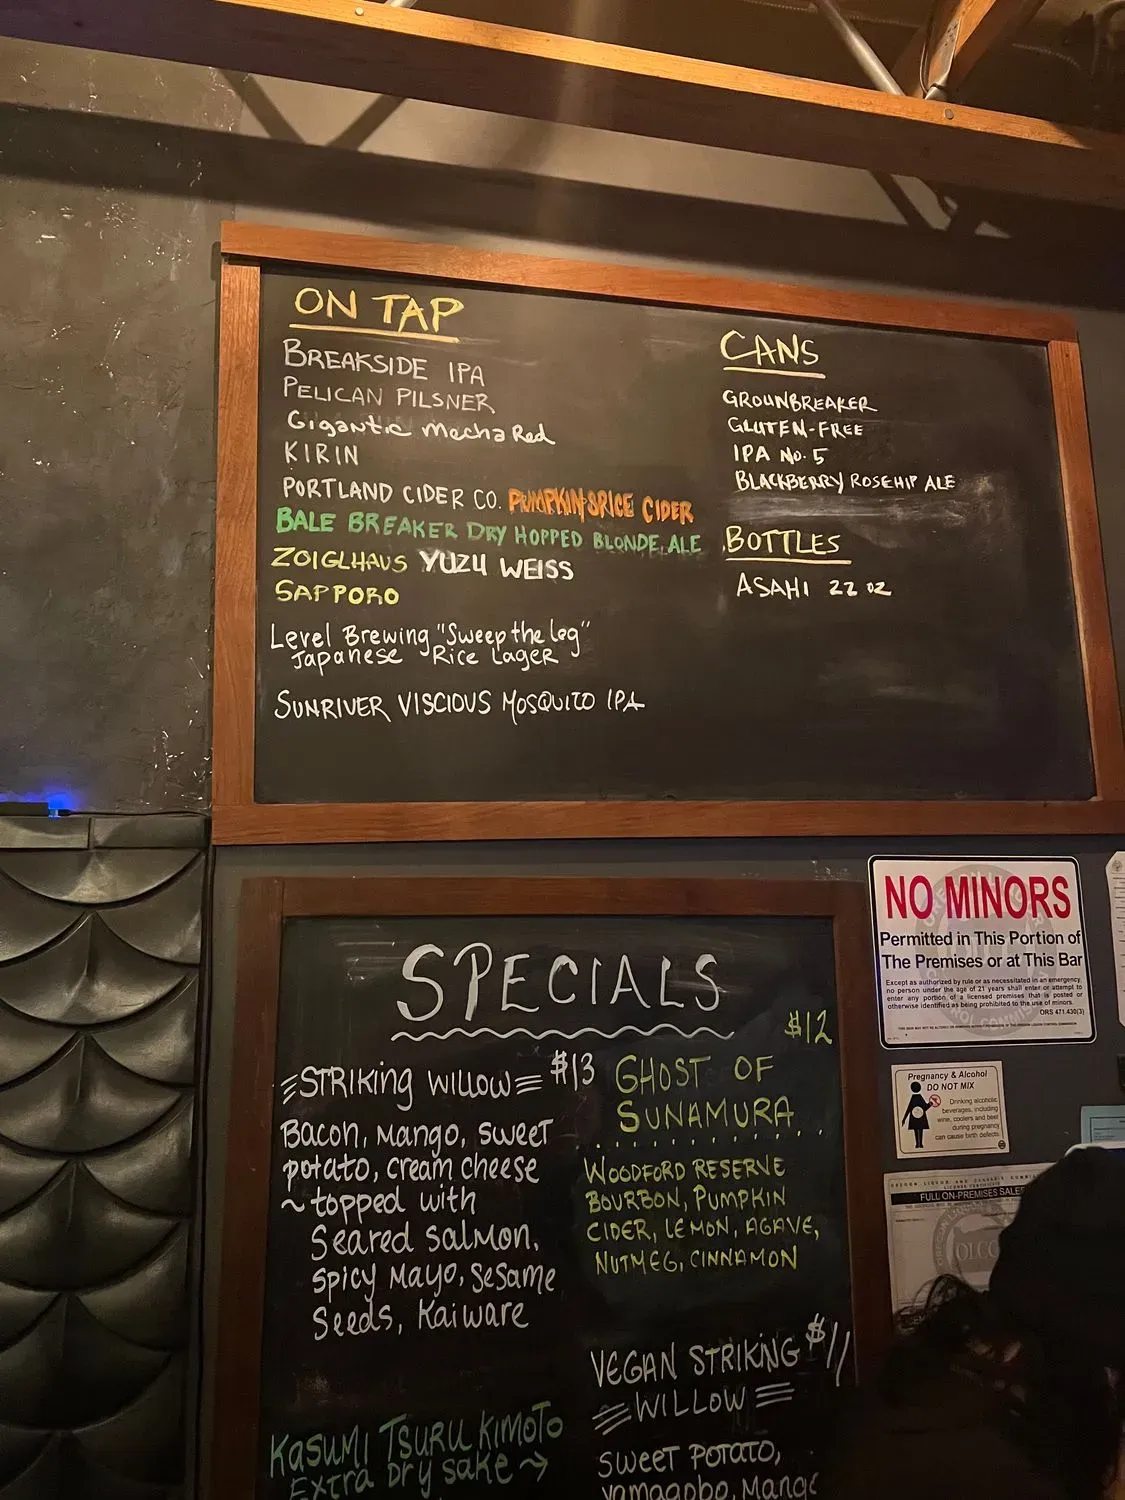 ON TAP
BREAKSIDE IPA
PELICAN PILSNER
Gigantic Mecha Red
KIRIN
PORTLAND CIDER CO. PUMPKIN SPICE CIDER
BALE BREAKER DRY HOPPED BLONDE ALE
ZOIGLHAUS YUZU WEISS
SAPPORO
Level Brewing "Sweep the leg"
Japanese Rice Lager
SUNRIVER VISCIOUS MOSQUITO IPA
CANS
GROUNBREAKER
GLUTEN-FREE
IPA No. 5
BLACKBERRY ROSEHIP ALE
BOTTLES
ASAHI 22 oz
SPECIALS
STRIKING WILLOW $13
Bacon, Mango, sweet
potato, cream cheese
~ topped with
Seared Salmon,
Spicy Mayo, Sesame
Seeds, Kaiware
KASUMI TSURU KIMOTO
Extra Dry sake →
$12
GHOST OF
SUNAMURA
WOODFORD RESERVE
BOURBON, PUMPKIN
CIDER, LEMON, AGAVE,
NUTMEG, CINNAMON
VEGAN STRIKING $11
WILLOW
SWEET POTATO,
yamagobo, Mango
NO MINORS
Permitted in This Portion of
The Premises or at This Bar
Except as authorized by rule or as necessitated in an emergency
no person under the age of 21 years shall enter or attempt to
enter any portion of a licensed premises that is posted or
otherwise identified as being prohibited to the use of minors.
ORS 471.430(3)
Pregnancy & Alcohol
DO NOT MIX
Drinking alcoholic
beverages, including
wine, coolers and beer
during pregnancy
can cause birth defects.
FULL ON-PREMISES SALES
OLCC